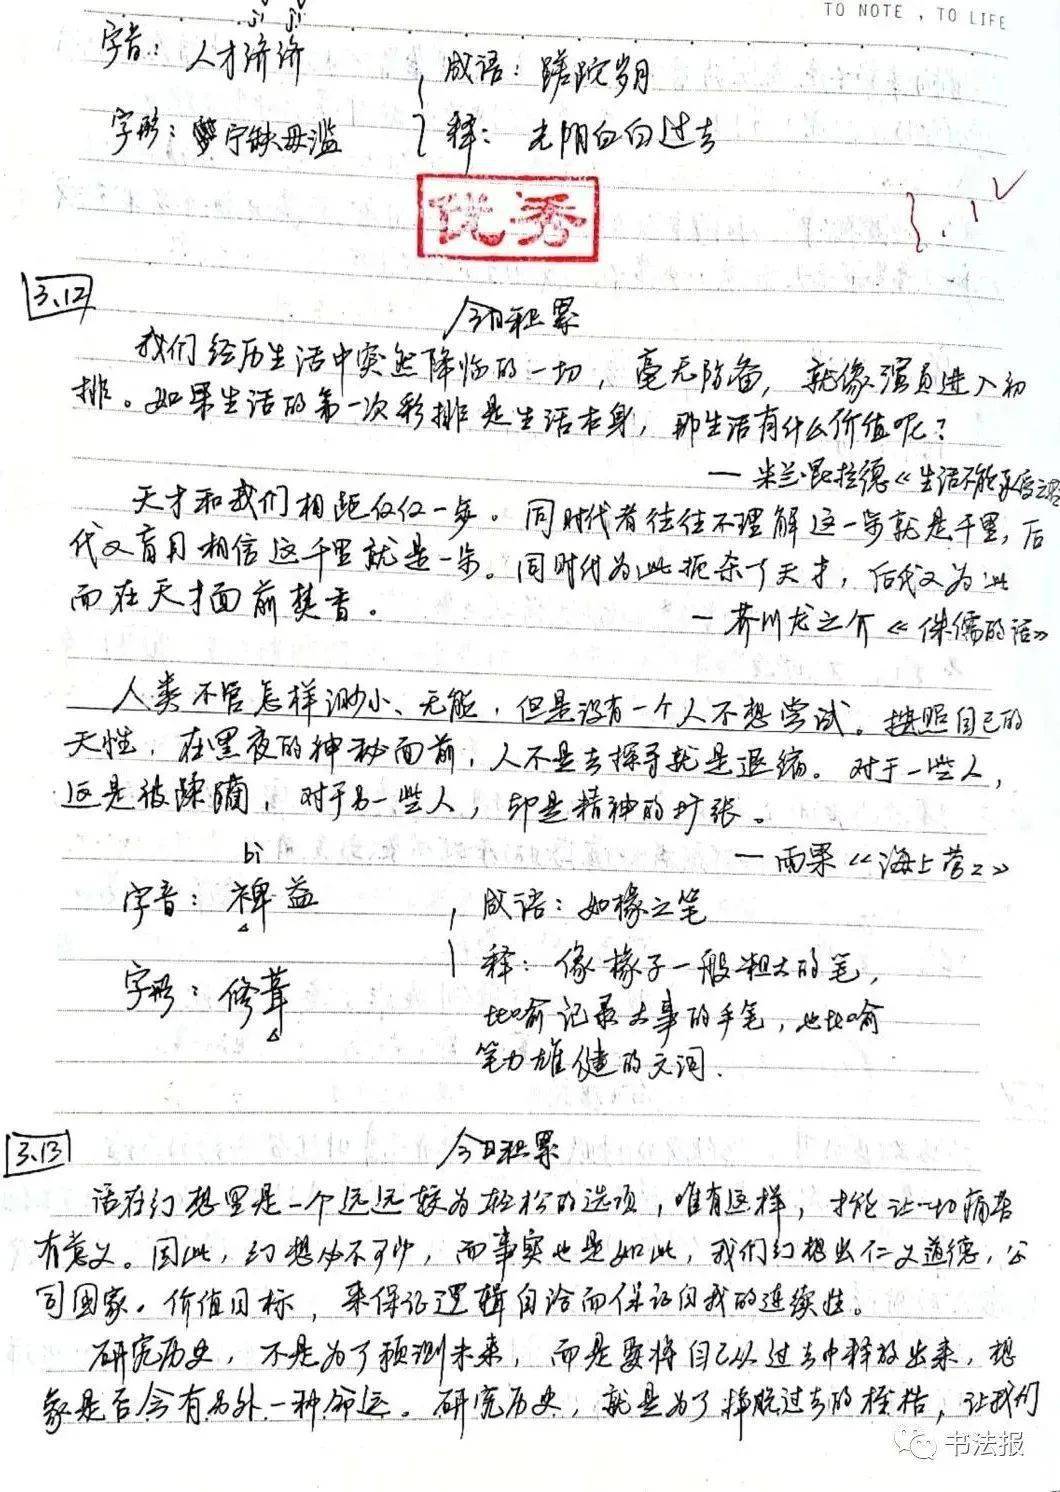 TO NOTE , TO LIFE
字音：人才济济
成语：蹉跎岁月
字形：宁缺毋滥
释：光阴白白过去
优秀
3.12
今日积累
我们经历生活中突然降临的一切，毫无防备，就像演员进入初
排。如果生活的第一次彩排是生活本身，那生活有什么价值呢？
— 米兰·昆拉德《生活不能承受之
天才和我们相距仅仅一步。同时代者往往不理解这一步就是千里，后
代又盲目相信这千里就是一步。同时代为此扼杀了天才，后代又为此
而在天才面前焚香。
— 芥川龙之介《侏儒的话》
人类不管怎样渺小、无能，但是没有一个人不想尝试。按照自己的
天性，在黑夜的神秘面前，人不是去探寻就是退缩。对于一些人，
这是被 对于另一些人，却是精神的扩张。
— 雨果《海上劳工》
bì
字音：裨益
成语：如椽之笔
字形：修葺
释：像椽子一般粗大的笔，
比喻记录大事的手笔，也比喻
笔力雄健的文词.
3.13
今日积累
活在幻想里是一个远远较为轻松的选项，唯有这样，才能让一切痛苦
有意义。因此，幻想必不可少，而事实也是如此，我们幻想出仁义道德，公
司国家。价值目标，来保证逻辑自洽而保证自我的连续性。
研究历史，不是为了预测未来，而是要将自己从过去中释放出来，想
象是否会有另外一种命运。研究历史，就是为了挣脱过去的桎梏，让我们
书法报